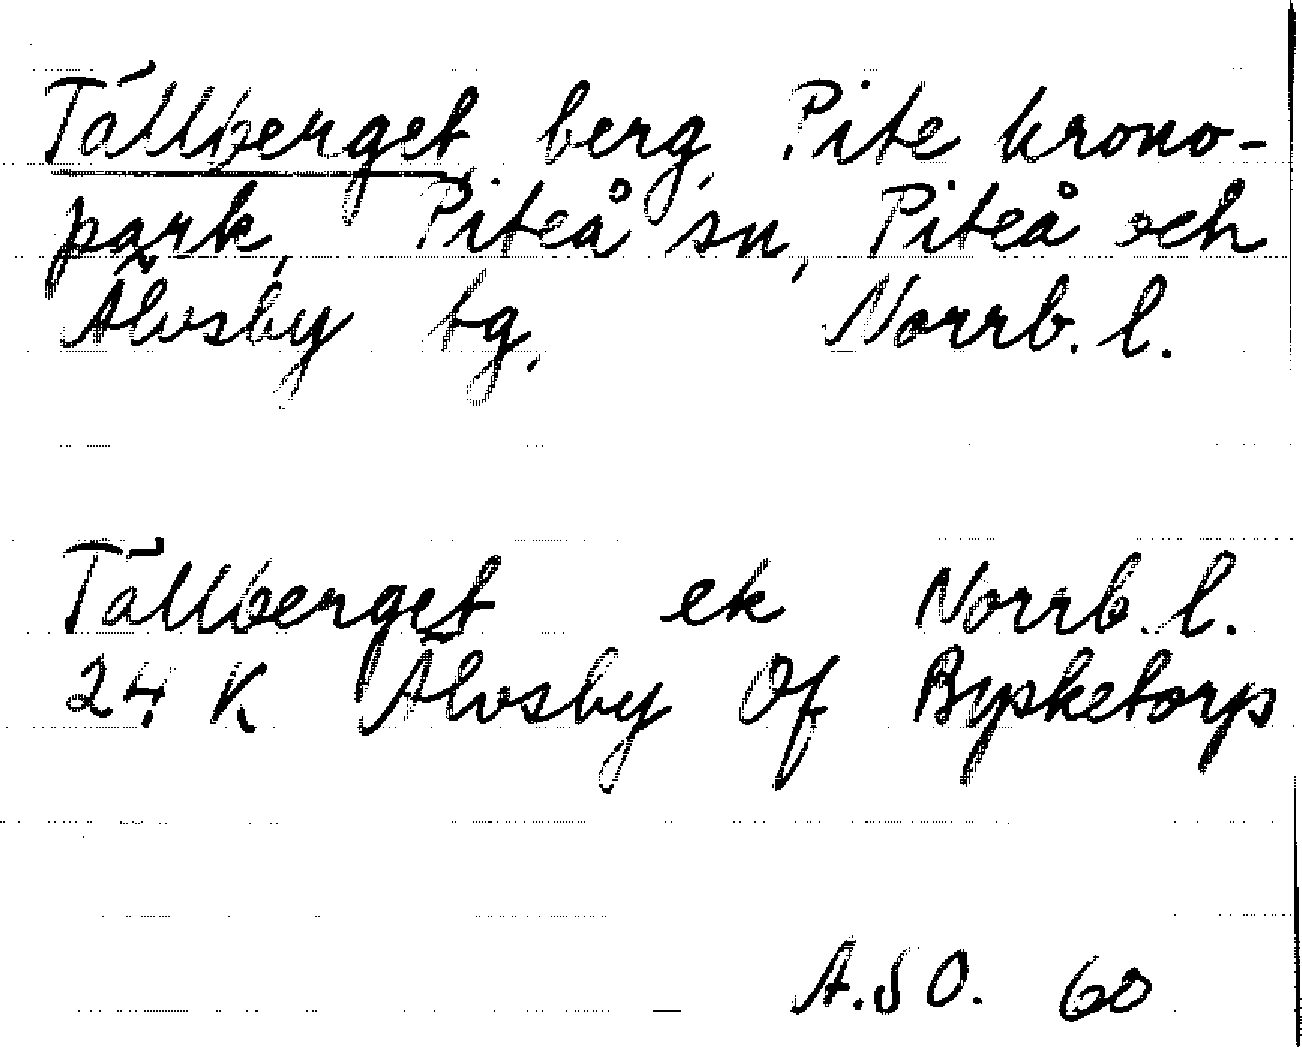 Tållberget, berg, Pite krono-
park, Piteå sn, Piteå och
Älvsby tg. Norrb. l.
Tällberget ek Norrb. l.
24 K Älvsby Of Bysketorp
A.SO. 60